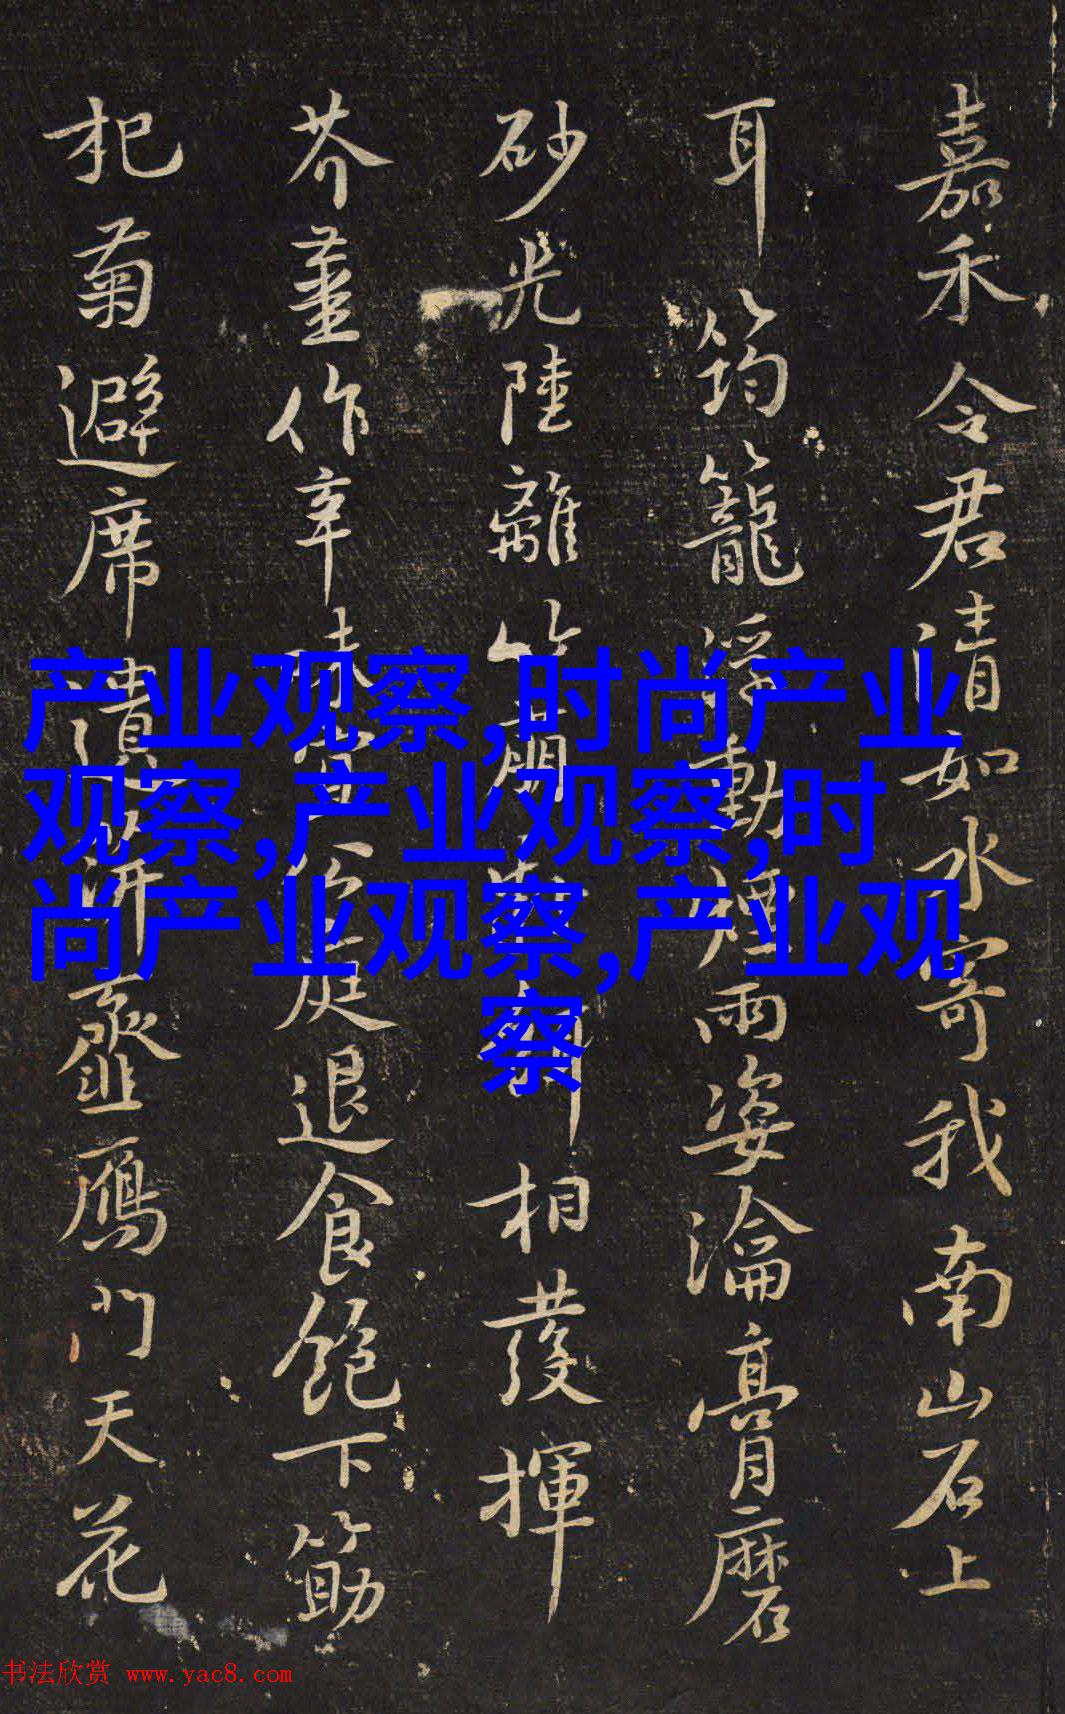 嘉禾令君清如水寄我南山石上
耳筠籠浮動煙雨姿瀹膏磨
砂光陸離竹萌相發揮
芥薑作辛味宜公庭退食飽下筯
杞菊避席遺萍虀鴈門天花
产业观察,时尚产业
观察,产业观察,时
尚产业观察,产业观
察
书法欣赏 www.yac8.com